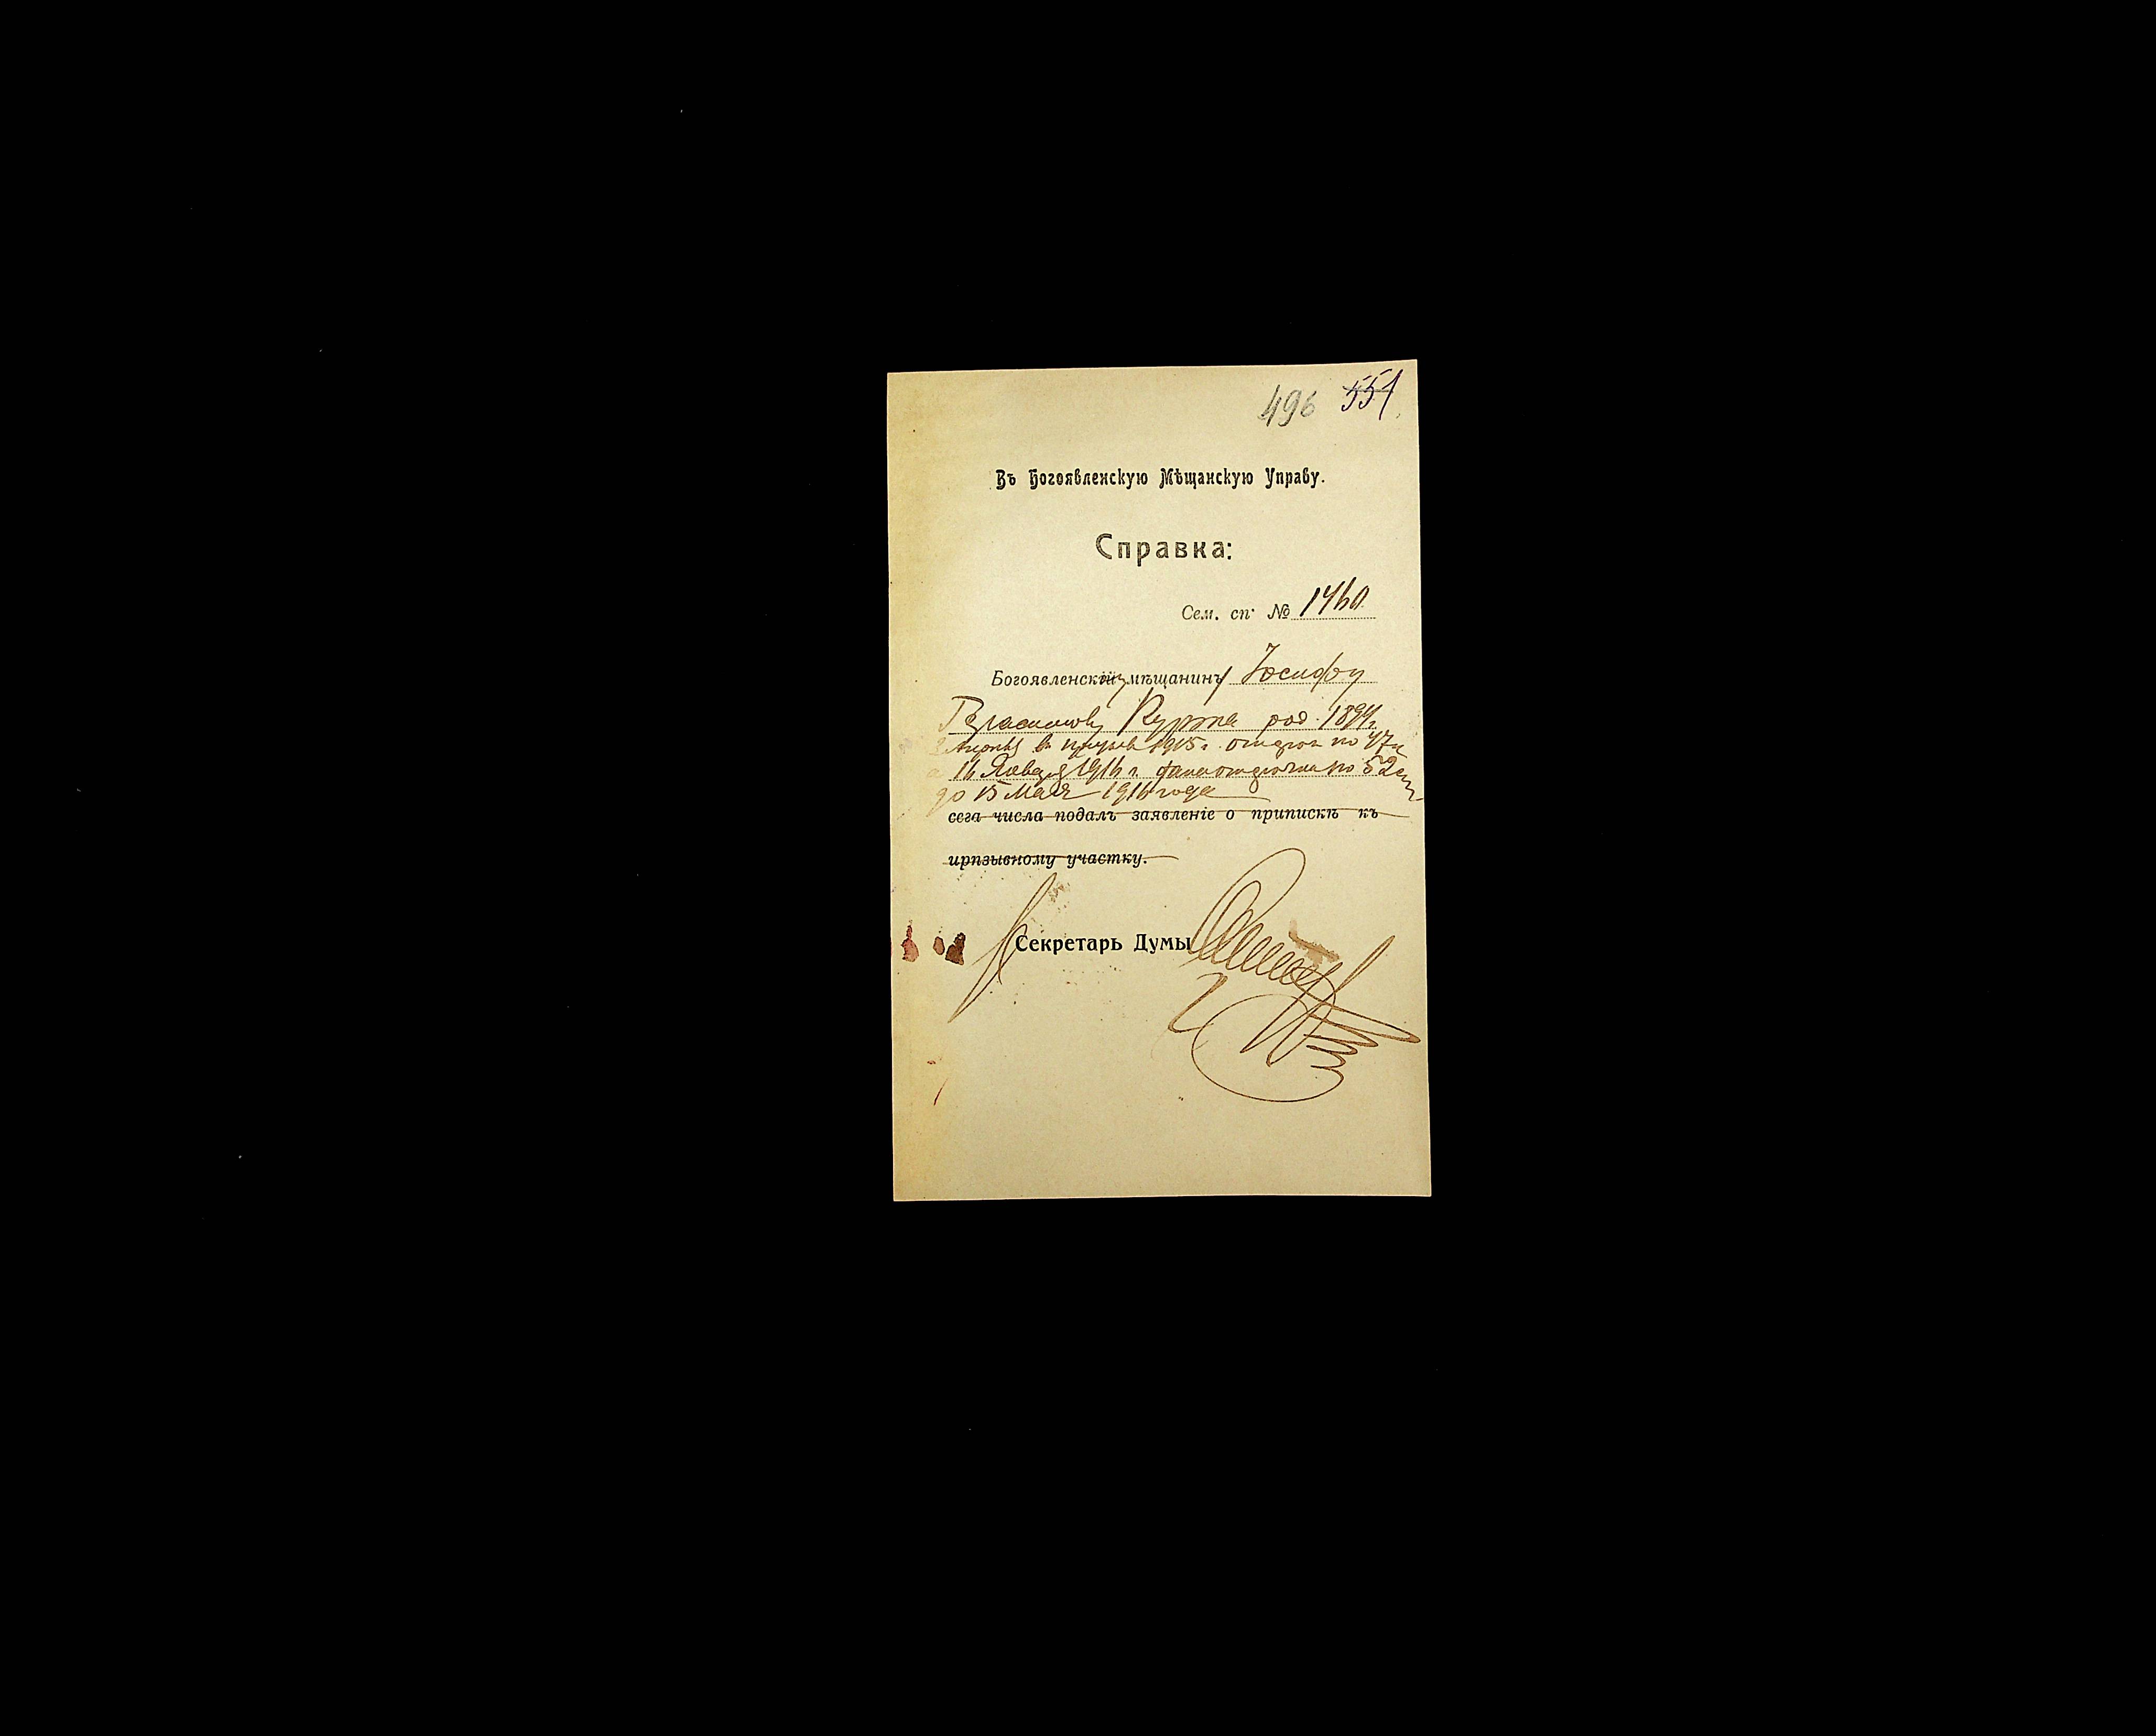 496 551
Въ Богоявленскую Мѣщанскую Управу.
Справка:
Сем. сп. № 1460
Богоявленскій мѣщанину Іосифу
Курта род. 1894 г.
въ 1915 г. по 47
16 1916 г. по 52
до 15 Мая 1916 года
сега числа подалъ заявленіе о припискѣ къ
ирпзывному участку.
Секретарь Думы